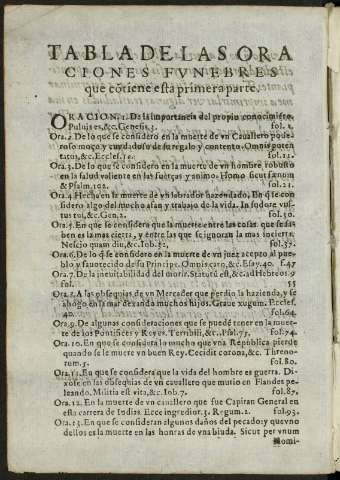 TABLA DE LAS ORA
CIONES FVNEBRES
que cõtiene esta primera parte.
ORACION. 1. De la importancia del propio conocimiẽto.
Puluis es, &c. Genesis. 3. fol. 1.
Ora. 2. De lo que se considero en la muerte de vn Cauallero pode
roso moço y cuydadoso de su regalo y contento. Omnis poten
tatui, &c. Eccles. 10. fol. 12.
Ora. 3. De lo que se considero en la muerte de vn hombre robusto
en la salud valiente en las fuerças y animo. Homo sicut fœnum
& Psalm. 102. fol. 21.
Ora. 4. Hecha en la muerte de vn labrador hazendado. En q̃ se con
sidero algo del mucho afan y trabajo de la vida. In sudore vul
tus tui, &c. Gen. 2. fol. 30.
Ora. 5. En que se considera que la muerte entre las cosas que se sa-
ben es la mas cierta, y entre las que se ignoran la mas incierta.
Nescio quam diu, &c. Iob. 32. fol. 37.
Ora. 6. De lo q̃ se cõsidero en la muerte de vn juez acepto al pue-
blo y fauorecido de su Principe. Omnis caro, &c. Esay. 40. f. 47
Ora. 7. De la ineuitabilidad del morir. Statutũ est, &c. ad Hebreos. 9
fol. 55
Ora. 8. A las obsequias de vn Mercader que perdio la hazienda, y se
ahogo en la mar dexando muchos hijos. Graue xugum. Eccles.
40. fol. 64.
Ora. 9. De algunas consideraciones que se puedẽ tener en la muer-
te de los Pontifices y Reyes. Terribili, &c. Psal. 75. fol. 74.
Ora. 10. En que se considera lo mucho que vna Republica pierde
quando se le muere vn buen Rey. Cecidit corona, &c. Threno-
rum. 5. fol. 80.
Ora. 11. En que se considera que la vida del hombre es guerra. Di-
xose en las obsequias de vn cauallero que murio en Flandes pe-
leando. Militia est vita, &c. Iob. 7. fol. 87.
Ora. 12. En la muerte de vn cauallero que fue Capitan General en
esta carrera de Indias. Ecce ingredior. 3. Regum. 2. fol. 93.
Ora. 13. En que se consideran algunos daños del pecado: y que vno
dellos es la muerte en las honras de vna biuda. Sicut per vnum
Homi-